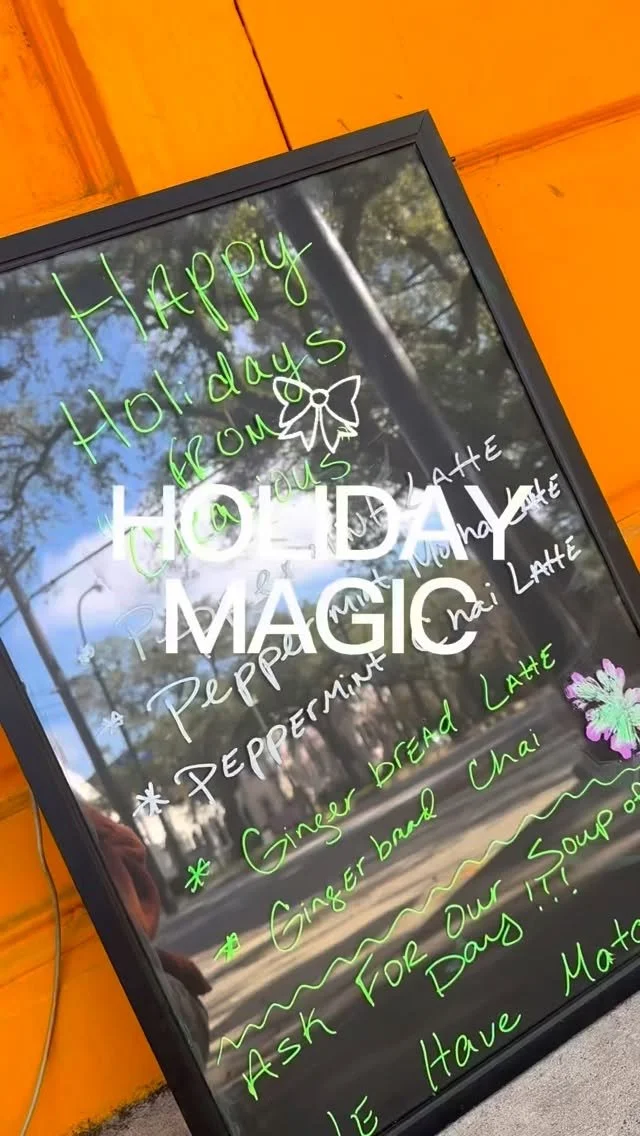 HAPPY
Holidays
FROM
HOLIDAY
MAGIC
* PEPPERMINT LATTE
* PEPPERMINT Mocha LATTE
* PEPPERMINT Chai LATTE
* Ginger bread LATTE
* Ginger bread Chai
ASK FOR OUR Soup of
Day !!!
Have